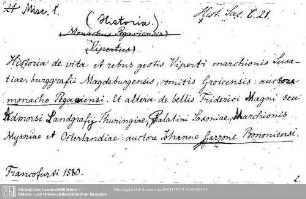 (Historia)
Hist. Sax. C. 21.
Monachus Pegaviensis
(Vipertus)
Historia de vita et rebus gestis Viperti marchionis Lusa-
tiae, burggrafii Magdeburgensis, comitis Groicensis: auctore
monacho Pegaviensi. Et altera de bellis Friderici Magni seu
Admorsi Landgrafij Thuringiae, Palatini Saxoniae, Marchionis
Mysniae et Osterlandiae: auctore Johanne Garzone Bononiensi.
Francofurti 1580.
2.